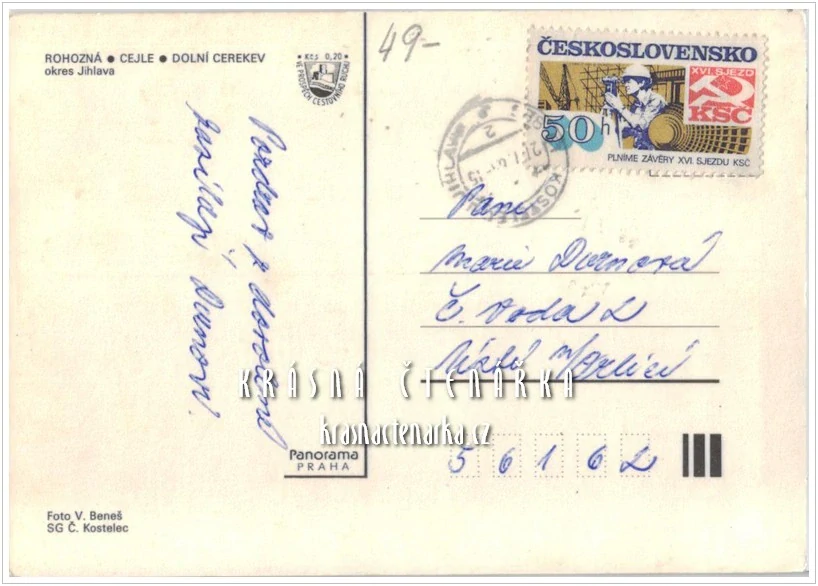 49-
ROHOZNÁ ● CEJLE ● DOLNÍ CEREKEV
okres Jihlava
Kčs 0,20
VE PROSPĚCH CESTOVNÍHO RUCHU
ČESKOSLOVENSKO
XVI. SJEZD
KSČ
50 h
PLNÍME ZÁVĚRY XVI. SJEZDU KSČ
Pozdrav z dovolené
zasílají Durnovi.
Paní
Marie Durnová
Č. Voda 2
Ústí n/Orlicí
56162
KRÁSNÁ ČTENÁŘKA
krasnactenarka.cz
Panorama
PRAHA
Foto V. Beneš
SG Č. Kostelec